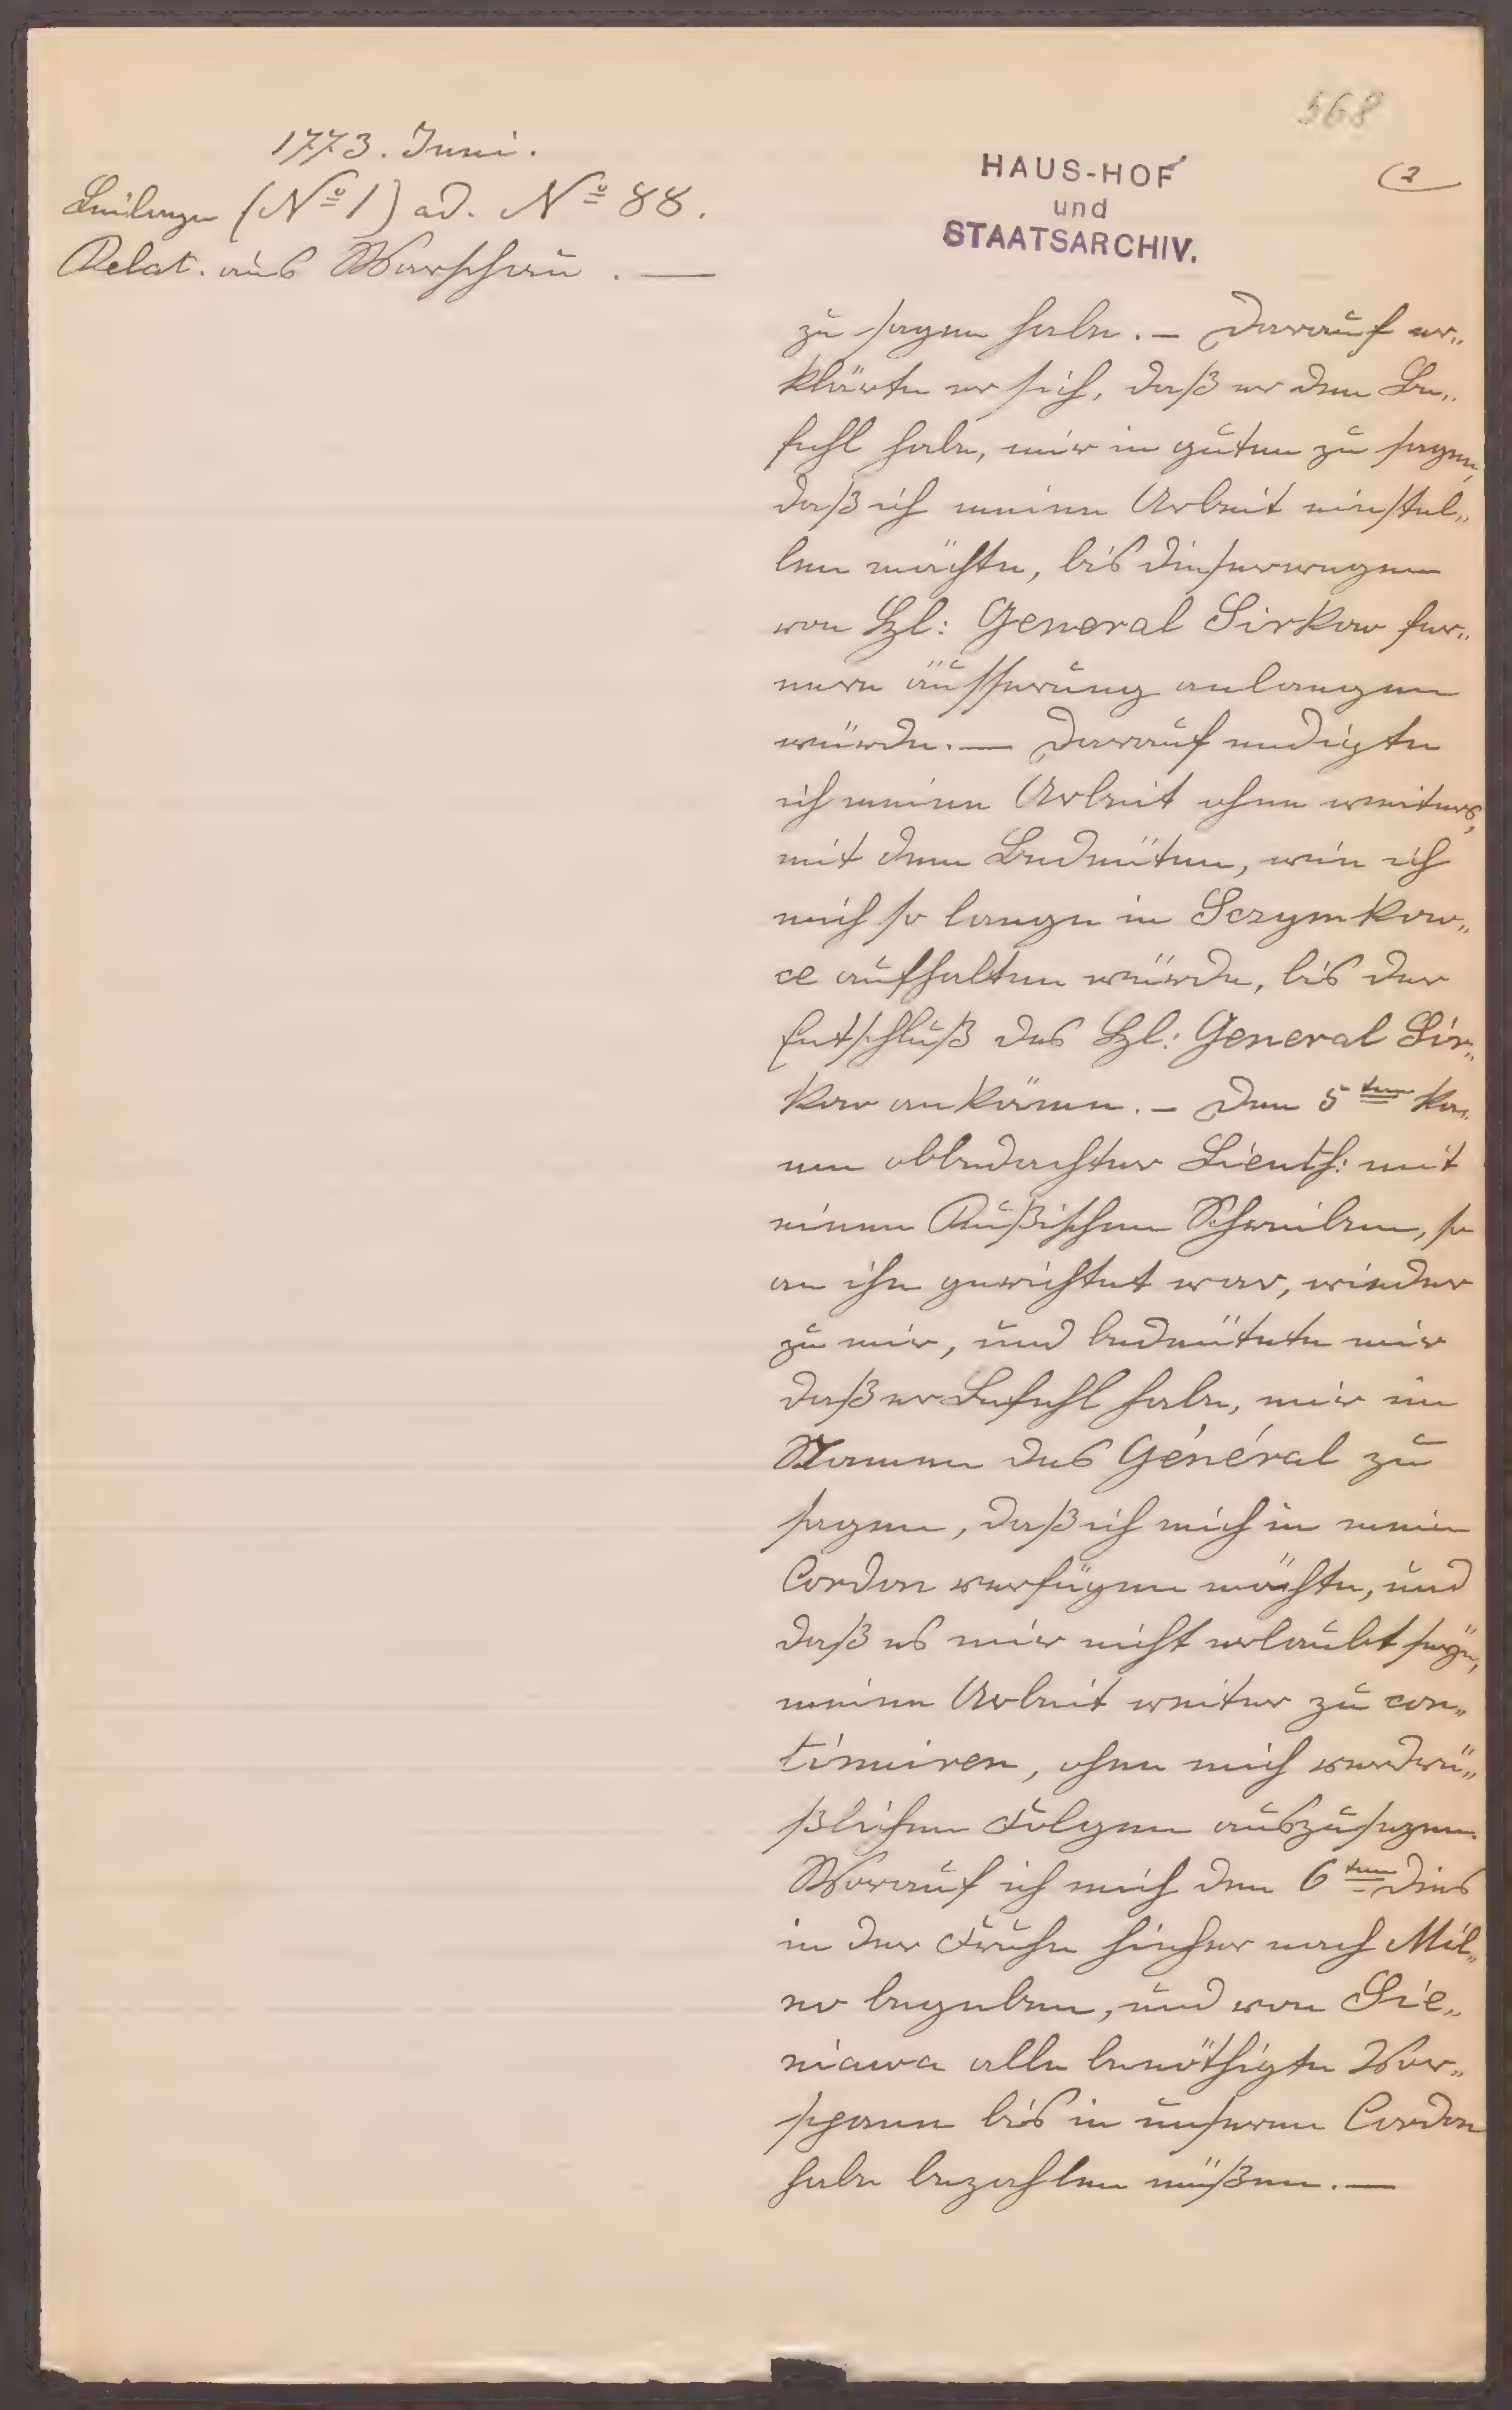 568
1773. Juni.
Beilage (Nº 1) ad. Nº 88.
Relat. aus Warschau. —
HAUS-HOF
und
STAATSARCHIV.
(2
zu sagen habe. — Darauf er„
klärte er sich, daß er den Be„
fehl habe, mir in guten zu sagen,
daß ich meine Arbeit einstel„
len möchte, bis dieserwegen
von H: General Sirkow fer„
nere äusserung anlangen
würde. — Darauf endigte
ich meine Arbeit ohne weiters,
mit dem Bedeüten, wie ich
mich so lange in Sczymkow„
ce aufhalten würde, bis der
Entschluß des H: General Sir„
kow ankäme. — Den 5ten ka„
me obbedachter Lieuth: mit
einem Rußischen Schreiben, so
an ihn gerichtet war, wieder
zu mir, und bedeütete mir
daß er Befehl habe, mir im
Namen des Général zu
sagen, daß ich mich in mein
Cordon verfügen möchte, und
daß es mir nicht erlaubt seÿe,
meine Arbeit weiter zu con„
tinuiren, ohne mich verdrü„
ßlichen Folgen auszusezen.
Worauf ich mich den 6ten dies
in der Fruhe hieher nach Mil„
no begeben, und von Sie„
niawa alle benöthigte Vor„
spann bis in unseren Cordon
habe bezahlen müßen. —